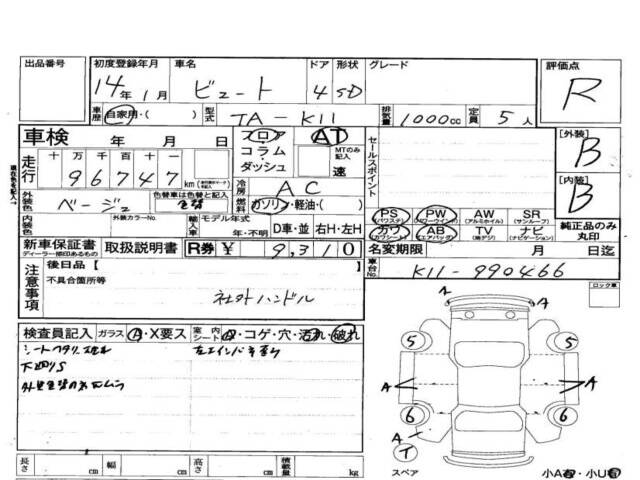 出品番号
初度登録年月 14年 1月
車名 ビュート
ドア 4 形状 SD
グレード
評価点 R
車歴 自家用・( )
型式 TA-K11
排気量 1000cc
定員 5人
車検 年 月 日
フロア・コラム・ダッシュ
AT
MTのみ記入 速
セールスポイント
[外装] B
[内装] B
走行 十万千百十一
96747 km
冷房 AC
外装色 ベージュ
色替車は色替と記入 色替
燃料 ガソリン・軽油・( )
内装色
外装カラーNo.
輸入車 モデル年式 年・不明
D車・並 右H・左H
PS (パワステ) PW (パワーウインド) AW (アルミホイル) SR (サンルーフ)
カワ (カワシート) AB (エアバッグ) TV ナビ (ナビゲーション)
純正品のみ丸印
新車保証書
ディーラー捺印あるもの
取扱説明書
R券 ¥ 9,310
名変期限 月 日迄
車台No. K11-990466
注意事項
後日品 [
不具合箇所等
社外ハンドル
ロック車
検査員記入 ガラス A・X要ス
室内シート ・コゲ・穴・汚れ・破れ
シートヘタリ
下回りS
A A
5 5
A A
6 6
A
T
長さ cm 幅 cm 高さ cm 積載量 kg
スペア
小A・小U